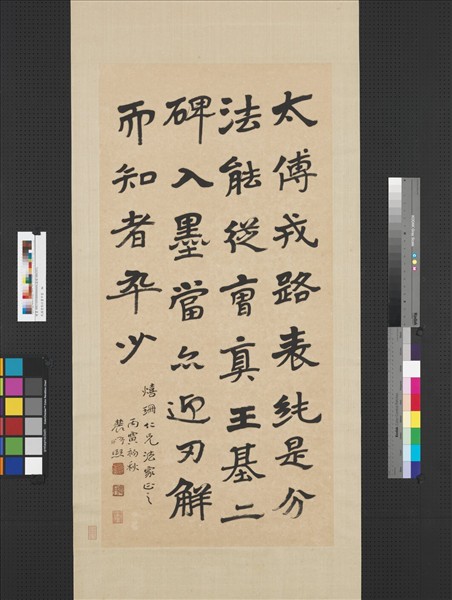 太傅戎路表純是分
法能從曹真王基二
碑入墨當亦迎刃解
而知者卒少
熺珊仁兄法家正之
丙寅初秋
農髯熙